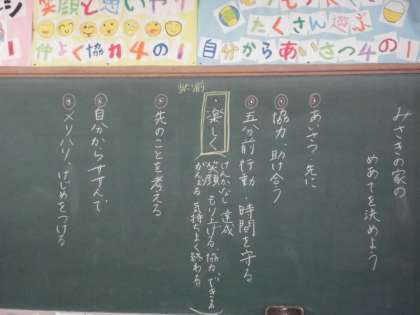 笑顔と思いやり
仲よく協力4の1
たくさん遊ぶ
自分からあいさつ4の1
みさきの家の
めあてを決めよう
あいさつ 先に
協力、助け合う
五分前行動・時間を守る
・楽しく
けんかなし 達成
笑顔 もり上げる 協力 できる
がんばる 気持ちよく終わる
先のことを考える
自分からすすんで
メリハリ、けじめをつける